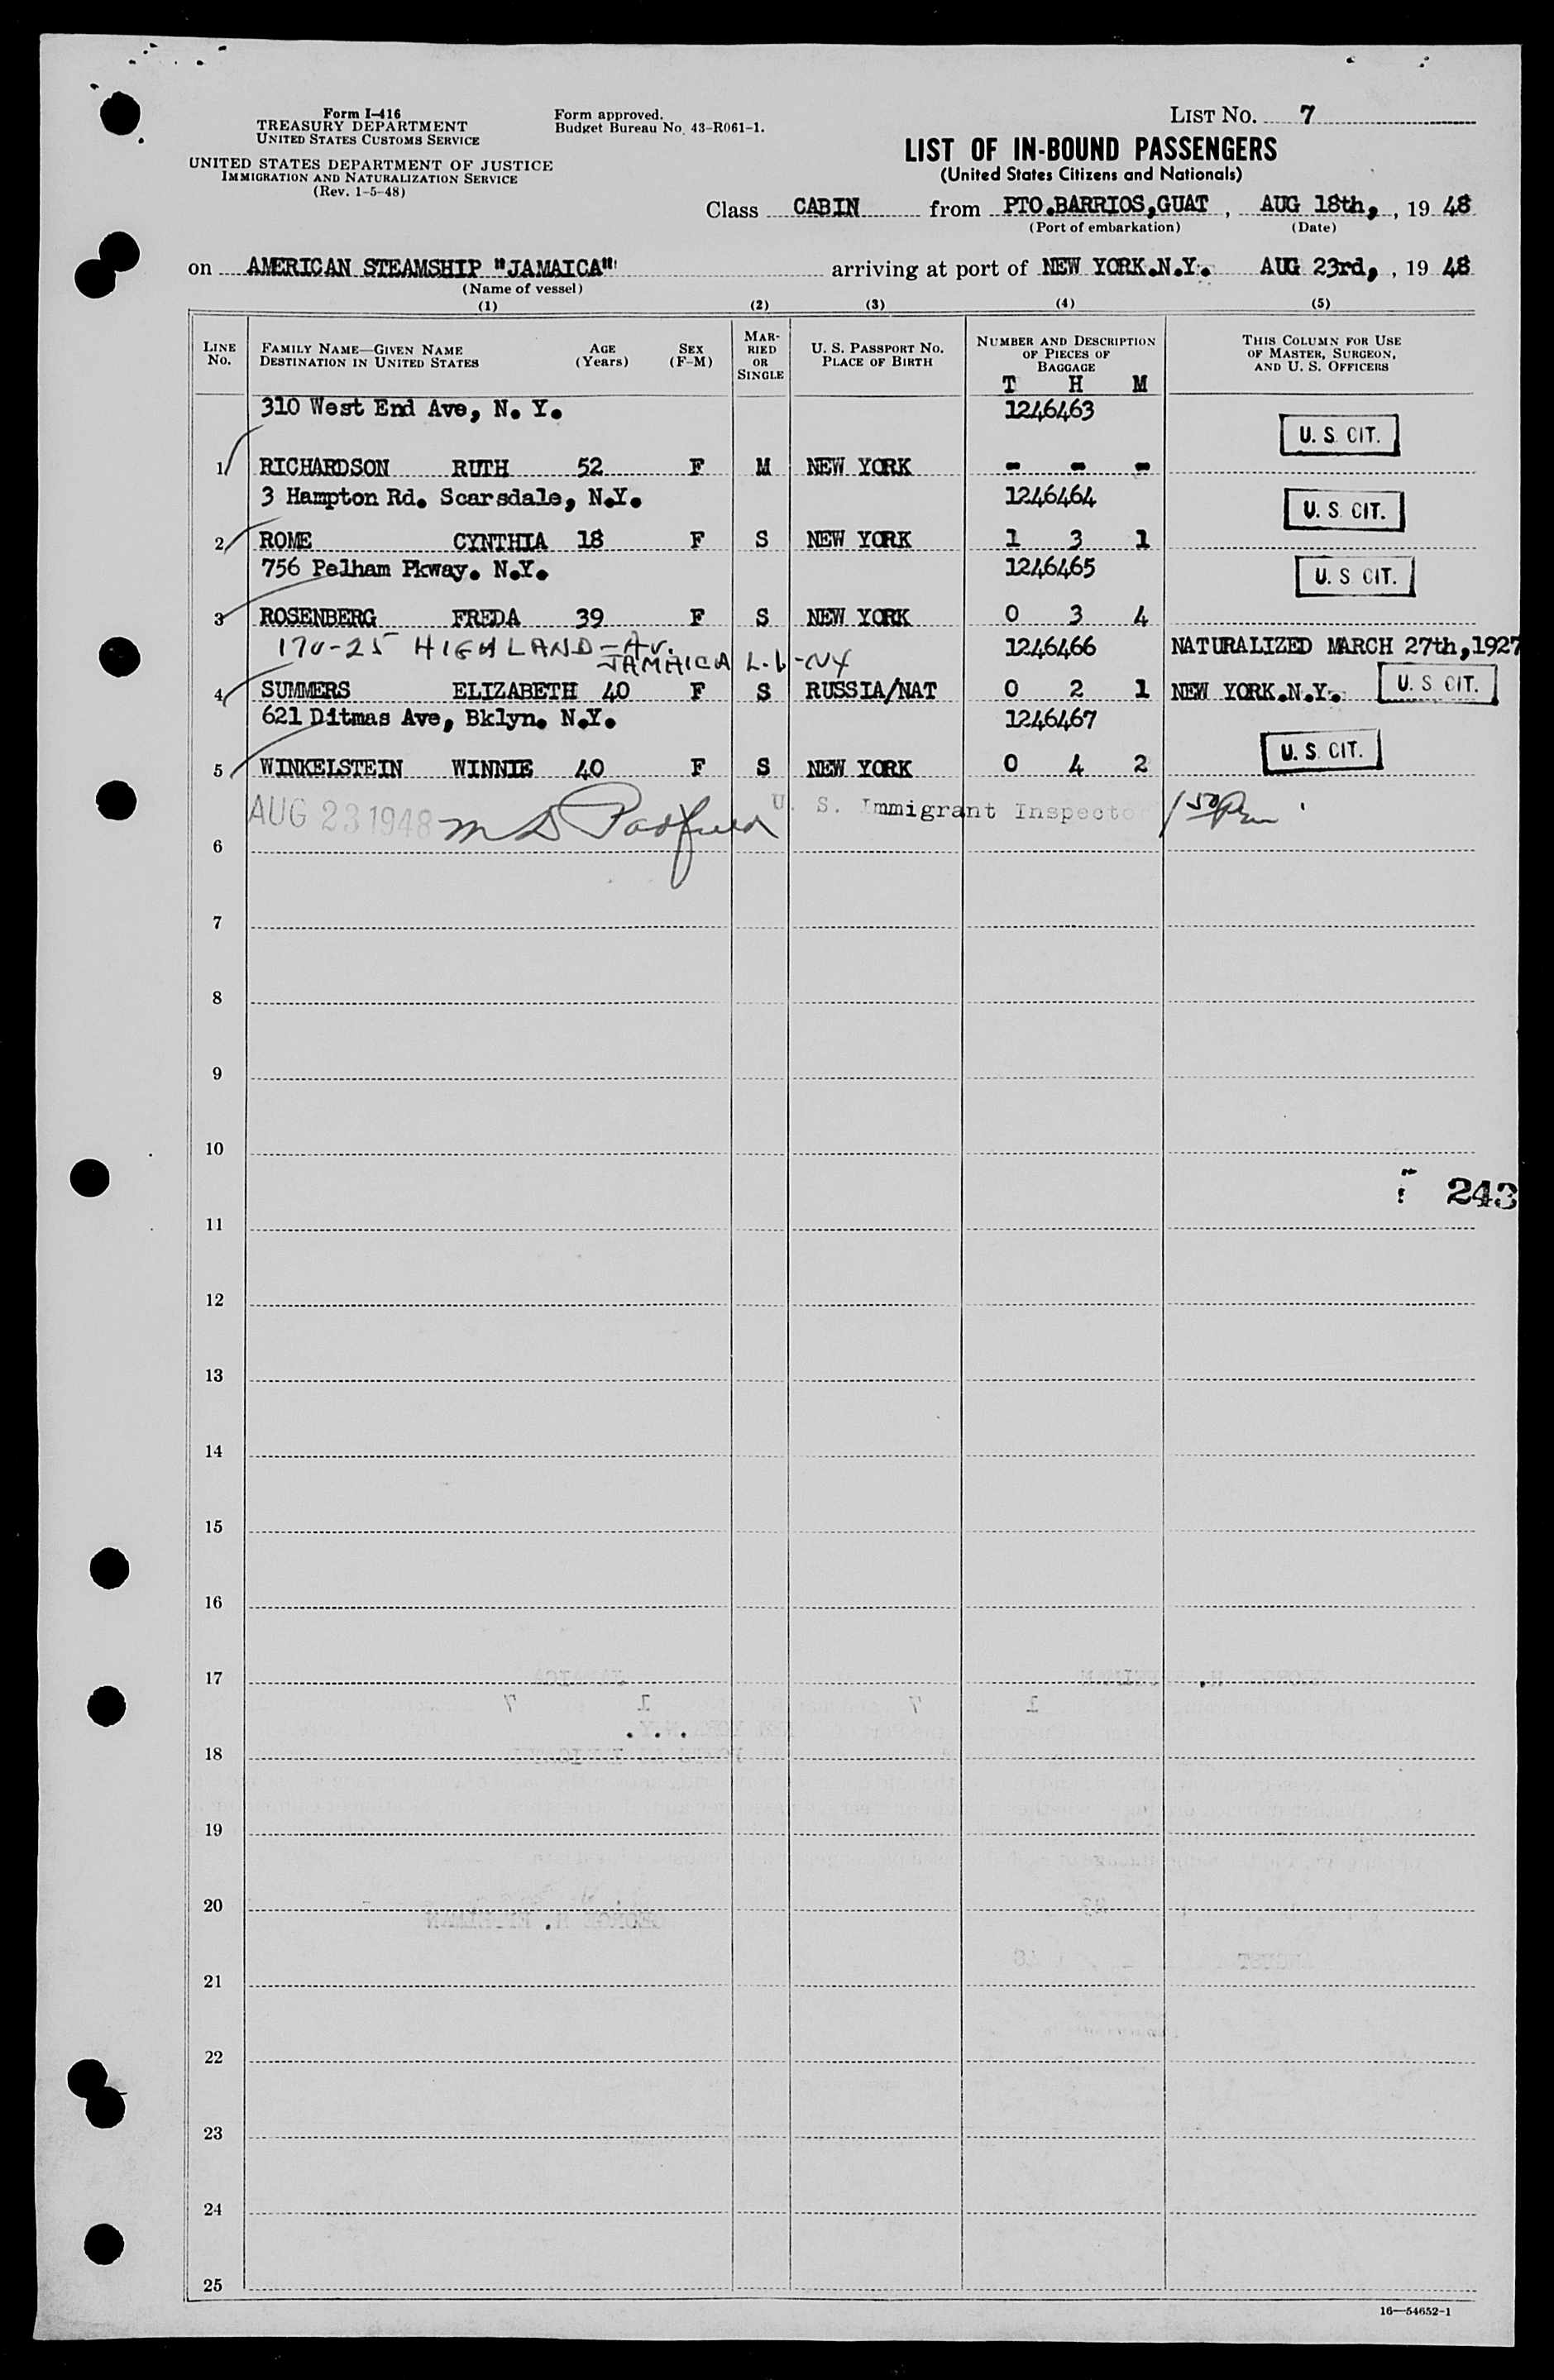 Form I-416
TREASURY DEPARTMENT
UNITED STATES CUSTOMS SERVICE
UNITED STATES DEPARTMENT OF JUSTICE
IMMIGRATION AND NATURALIZATION SERVICE
(Rev. 1-5-48)
Form approved.
Budget Bureau No. 43-R061-1.
LIST NO. 7
LIST OF IN-BOUND PASSENGERS
(United States Citizens and Nationals)
Class CABIN from PTO.BARRIOS,GUAT, AUG 18th, , 19 48
(Port of embarkation) (Date)
on AMERICAN STEAMSHIP "JAMAICA" arriving at port of NEW YORK.N.Y. AUG 23rd, , 19 48
(Name of vessel)
(1) (2) (3) (4) (5)
LINE No. FAMILY NAME—GIVEN NAME DESTINATION IN UNITED STATES AGE (Years) SEX (F-M) MARRIED OR SINGLE U. S. PASSPORT NO. PLACE OF BIRTH NUMBER AND DESCRIPTION OF PIECES OF BAGGAGE THIS COLUMN FOR USE OF MASTER, SURGEON, AND U. S. OFFICERS
T H M
310 West End Ave, N. Y. 1246463 U. S. CIT.
1 RICHARDSON RUTH 52 F M NEW YORK - - -
3 Hampton Rd. Scarsdale, N.Y. 1246464 U. S. CIT.
2 ROME CYNTHIA 18 F S NEW YORK 1 3 1
756 Pelham Pkway. N.Y. 1246465 U. S. CIT.
3 ROSENBERG FREDA 39 F S NEW YORK 0 3 4
170-25 HIGHLAND-Av. 1246466 NATURALIZED MARCH 27th,1927
JAMAICA L.I-NY
4 SUMMERS ELIZABETH 40 F S RUSSIA/NAT 0 2 1 NEW YORK.N.Y. U. S. CIT.
621 Ditmas Ave, Bklyn. N.Y. 1246467
5 WINKELSTEIN WINNIE 40 F S NEW YORK 0 4 2 U. S. CIT.
AUG 23 1948 M D Padfield U. S. Immigrant Inspector 1 50 Pm
6
7
8
9
10
243
11
12
13
14
15
16
17
18
19
20
21
22
23
24
25
16—54652-1